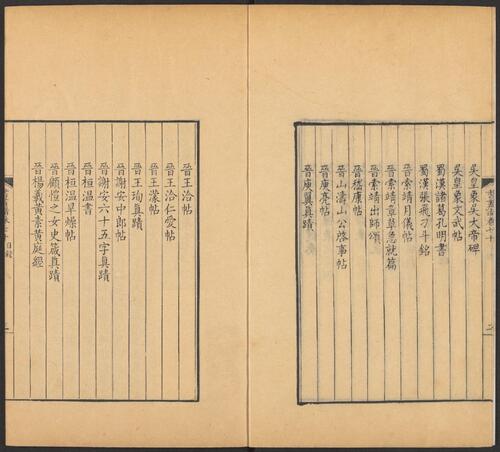 吳皇象吳大帝碑
吳皇象文武帖
蜀漢諸葛孔明書
蜀漢張飛刁斗銘
晉索靖月儀帖
晉索靖章草急就篇
晉索靖出師頌
晉嵇康帖
晉山濤山公啓事帖
晉庾亮帖
晉庾翼真蹟
晉王洽帖
晉王洽仁愛帖
晉王濛帖
晉王珣真蹟
晉謝安中郎帖
晉謝安六十五字真蹟
晉桓溫書
晉桓溫旱燥帖
晉顧愷之女史箴真蹟
晉楊羲黃素黃庭經